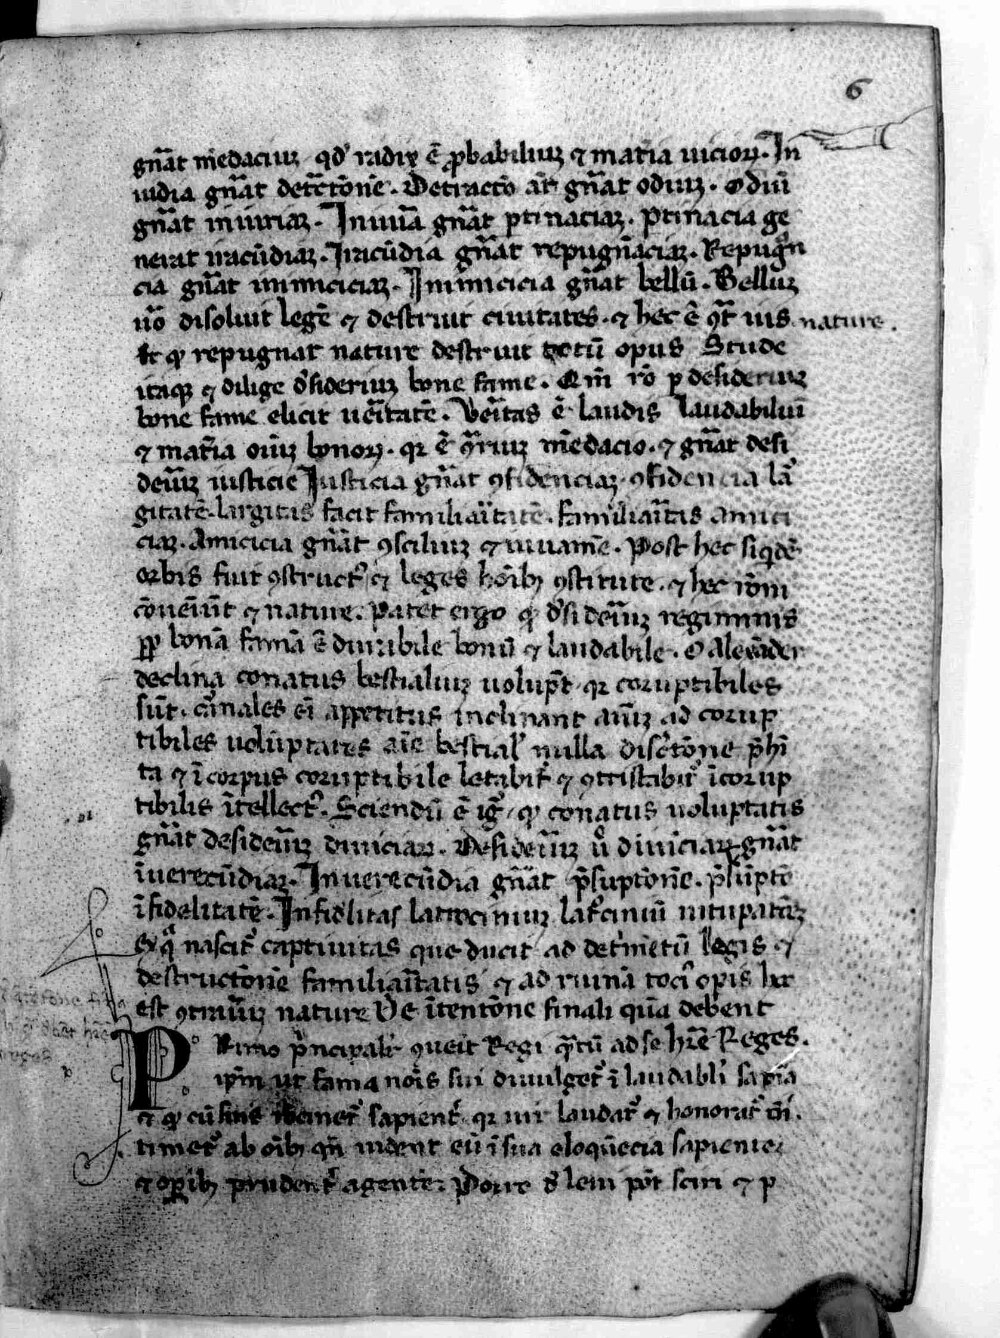 6
gñat mẽdaciuꝫ qd' radix ẽ ꝓbabiliuꝫ ⁊ mat̃ia uicioꝝ. In
uidia gñat det̃ctõne. Detractõ aũt gñat odiuꝫ. Odiũ
gñat iniuriaꝫ. Iniuria gñat ꝑtinaciaꝫ. ꝑtinacia ge
nerat iracũdiaꝫ. Iracũdia gñat repugñaciaꝫ. Repugñ
cia gñat inimiciciaꝫ. Inimicicia gñat bellũ. Belluꝫ
ũo disoluit legẽ ⁊ destruit ciuitates. ⁊ hec ẽ ꝯt̃ uis nature.
Et ꝙ repugnat nature destruit totũ opus Stude
itaqꝫ ⁊ dilige d'sideriuꝫ bone fame. Qm̃ rõ ꝑ desideriuꝫ
bone fame elicit ueritatẽ. Veritas ẽ laudis laudabiliuꝫ
⁊ mat̃ia oĩuꝫ bonoꝝ. qꝛ ẽ ꝯ̃riuꝫ mẽdacio. ⁊ gñat desi
deriuꝫ iusticie Iusticia gñat ꝯfidenciaꝫ. ꝯfidencia la
gitatẽ. largitas facit familiaritatẽ. familiaritas amici
ciaꝫ. Amicicia gñat ꝯsciliuꝫ ⁊ iuuamẽ. Post hec siqdẽ
orbis fuit ꝯstruct' ⁊ leges hoĩbꝫ ꝯstitute. ⁊ hec rõni
cõueniũt ⁊ nature. Patet ergo ꝙ d'sideriuꝫ regiminis
ꝓp bonã famã ẽ durabile bonũ ⁊ laudabile. O Alexãder
declina conatus bestialiuꝫ uolupt̃ qꝛ coruptibiles
sũt. carnales eĩ appetitus inclinant aĩuꝫ ad corup
tibiles uoluptates aĩe bestial' nulla disc̃tõne p̃hi
ta ⁊ ĩ corpus coruptibile letabit' ⁊ ꝯtristabit' ĩcorup
tibilis ĩtellect'. Sciendũ ẽ ig̃ ꝙ conatus uoluptatis
gñat desideriuꝫ diuiciaꝝ. Desideriuꝫ ũ diuiciaꝝ gñat
ĩuerecũdiaꝫ. Inuerecũdia gñat p̃suptõne. p̃sũptõ
ĩfidelitatẽ. Infidelitas latrociniuꝫ latrociniũ uitupatõeꝫ
ex q̃ nascit' captiuitas que ducit ad det̃mẽtũ legis ⁊
destructõne familiaritatis ⁊ ad ruinã toci' opis hec
est ꝯtrariuꝫ nature De ĩtentõne finali quã debent
Primo p̃ncipalit' ꝯueit Regi q̃tũ ad se hr̃e Reges.
ip̃m ut fama noĩs sui diuulget' ĩ laudabli sapĩa
timet' ab oĩbꝫ qñ uident eũ ĩ sua eloquẽcia sapiente
⁊ oꝑibꝫ prudent' agentẽ. Porro d' leui põt sciri ⁊ ꝑ